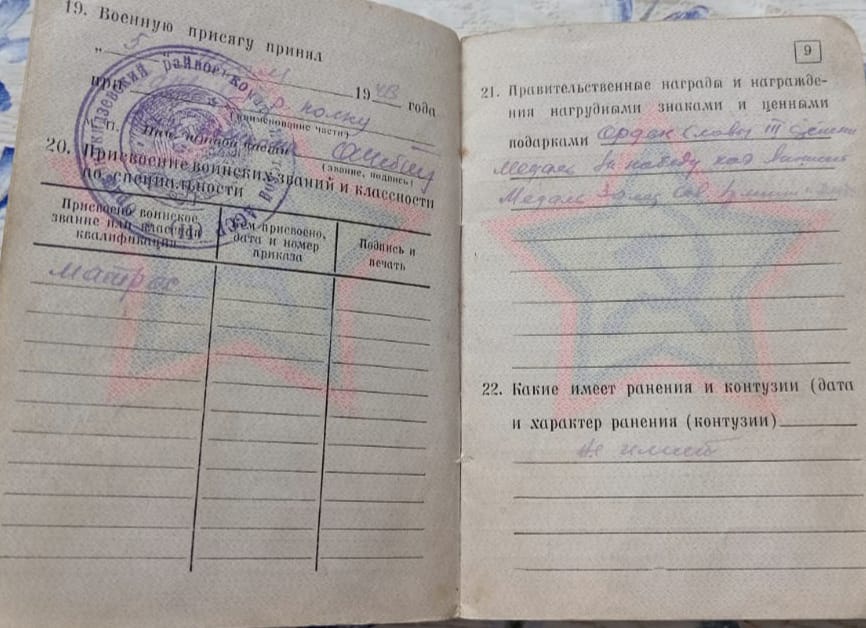 19. Военную присягу принял
„ 5
19 43 года
при полку
(наименование части)
М. П.
(звание, подпись)
20. Присвоение воинских званий и классности
по специальности
Присвоено воинское
звание или классная
квалификация
Кем присвоено,
дата и номер
приказа
Подпись и
печать
матрос
9
21. Правительственные награды и награжде-
ния нагрудными знаками и ценными
подарками Орден Славы III степени
Медаль За победу над
Медаль
22. Какие имеет ранения и контузии (дата
и характер ранения (контузии)
не имеет